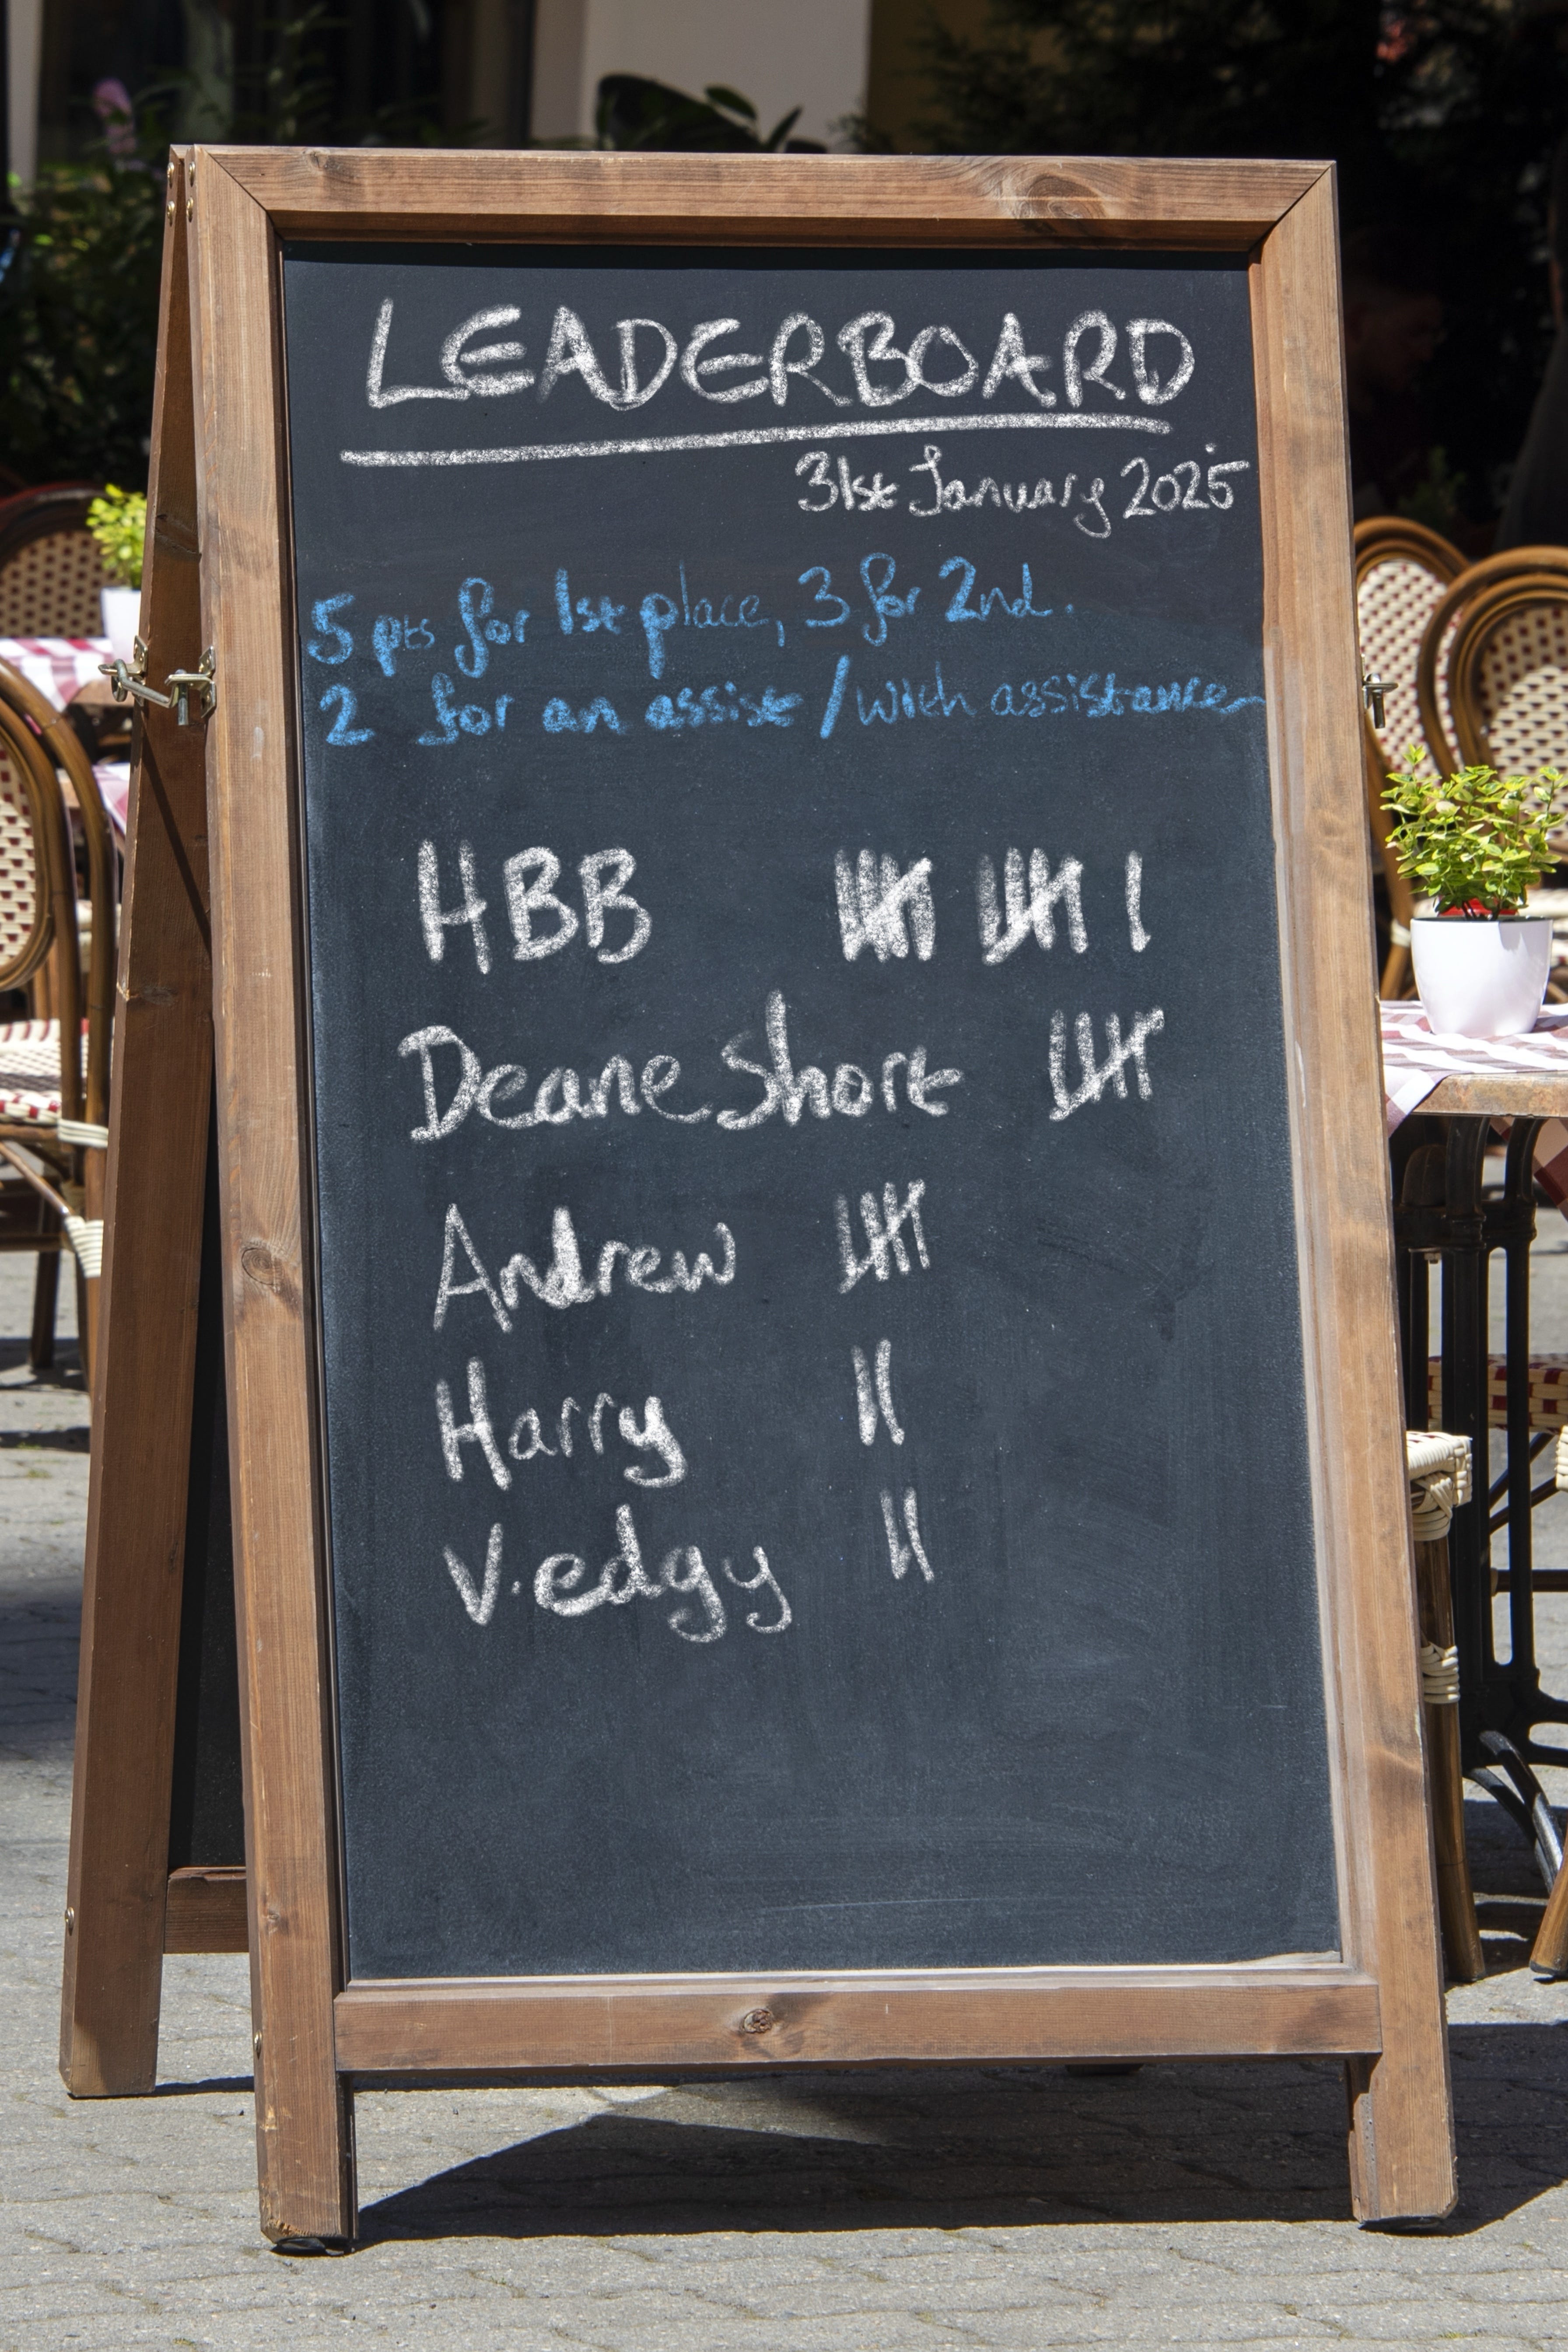 LEADERBOARD
31st January 2025
5 pts for 1st place, 3 for 2nd.
2 for an assist / with assistance
HBB 𝍸 𝍸 I
Deane Short 𝍸
Andrew 𝍸
Harry II
V.edgy II